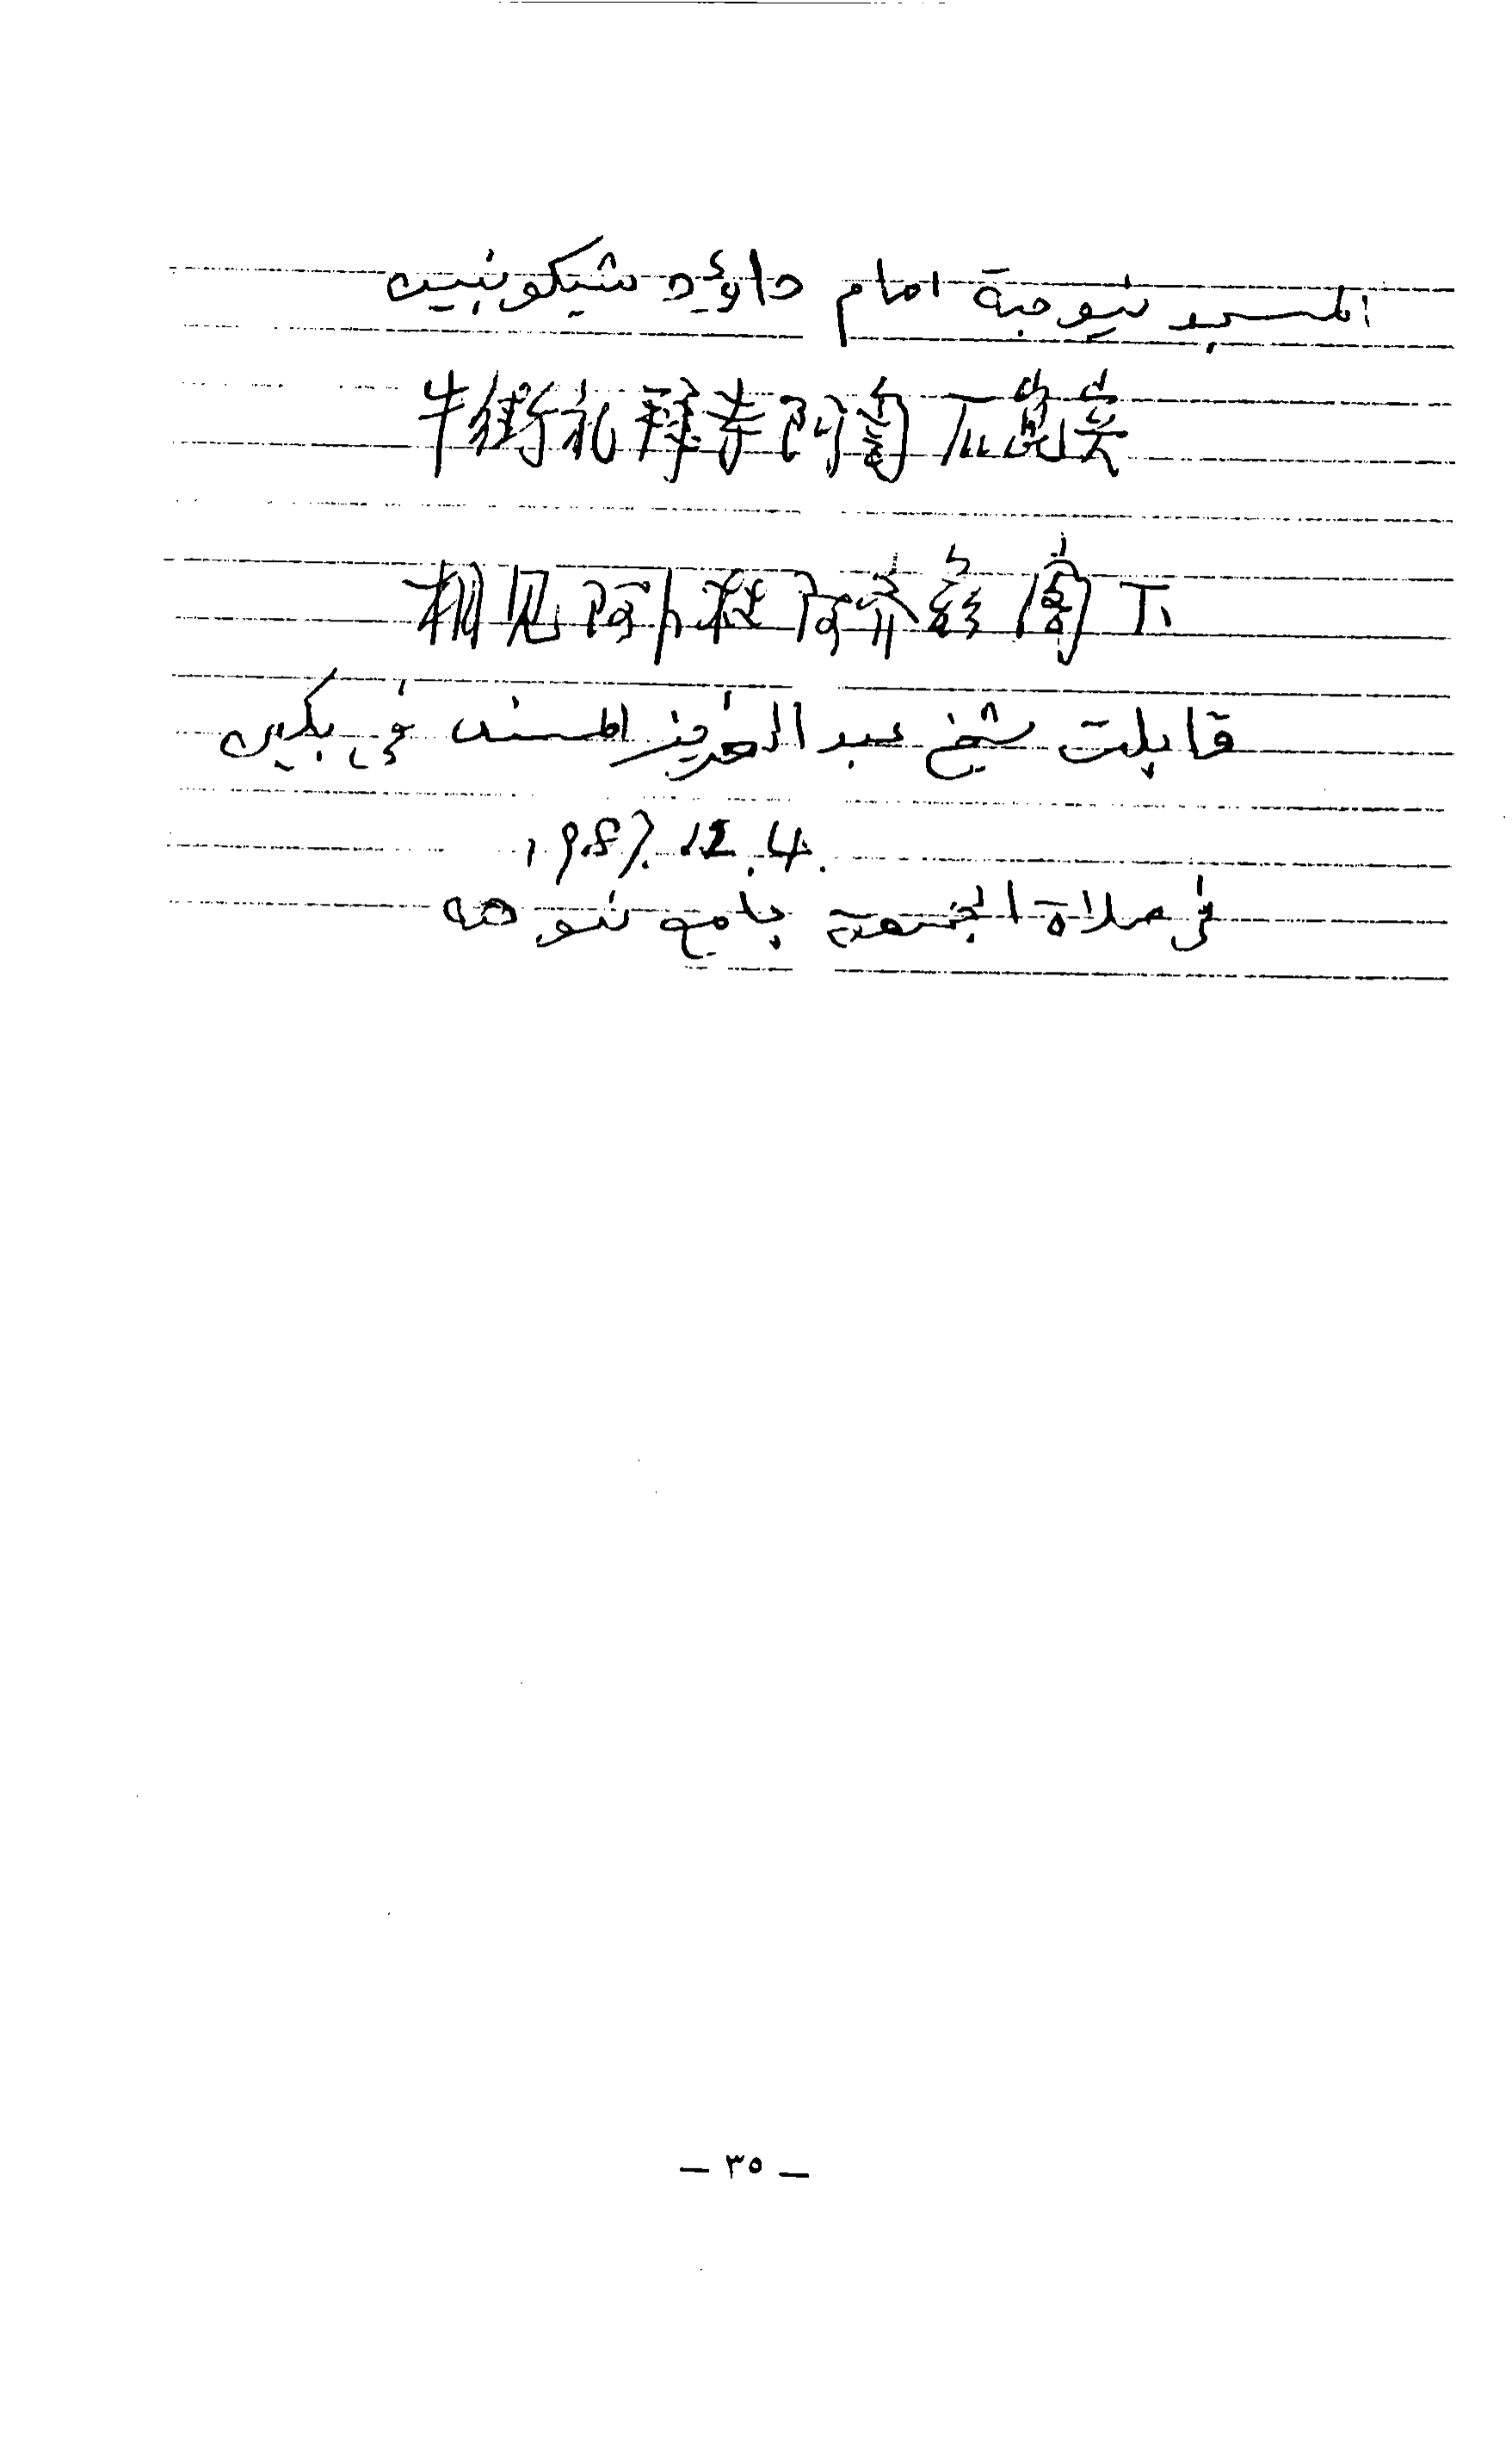 المسجد نيوجية امام داؤد شيكونبين
牛街礼拜寺阿訇石昆宾
相见阿卜杜阿齐兹阁下
قابلت شيخ عبد العزيز المسند في بكين
1987.12.4.
في صلاة الجمعة بجامع نيو جه
— ٣٥ —